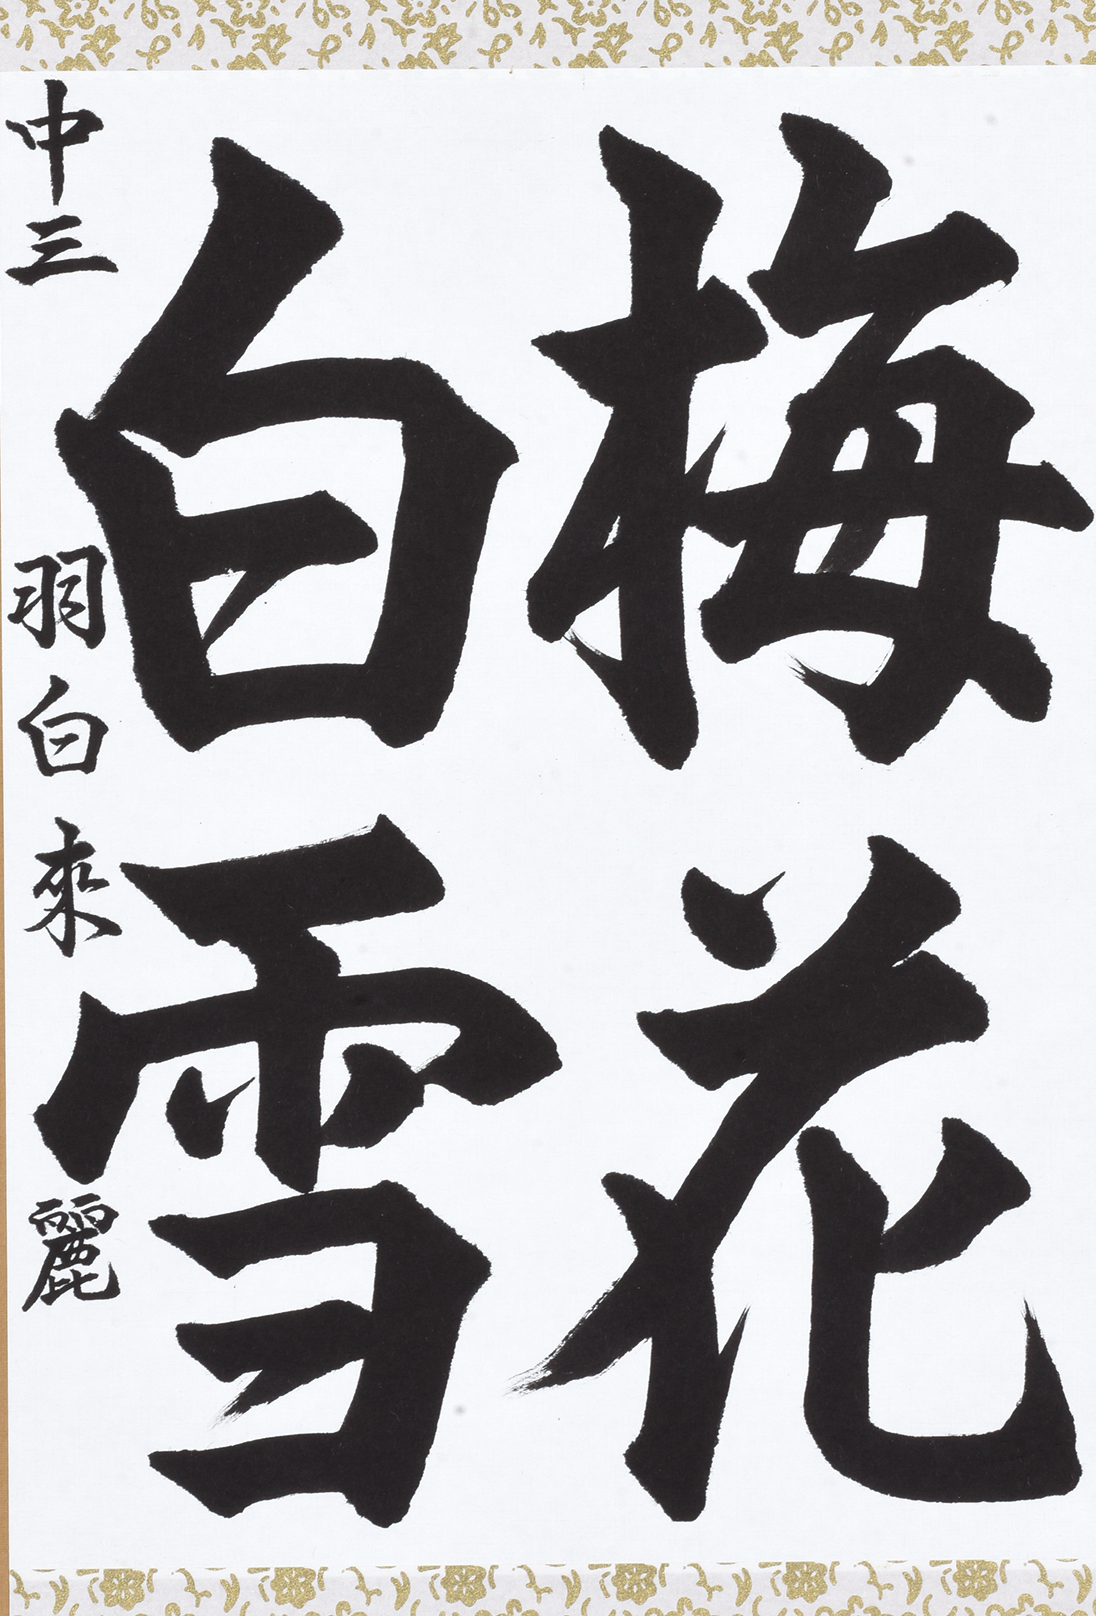 梅花
白雪
中三 羽白来麗